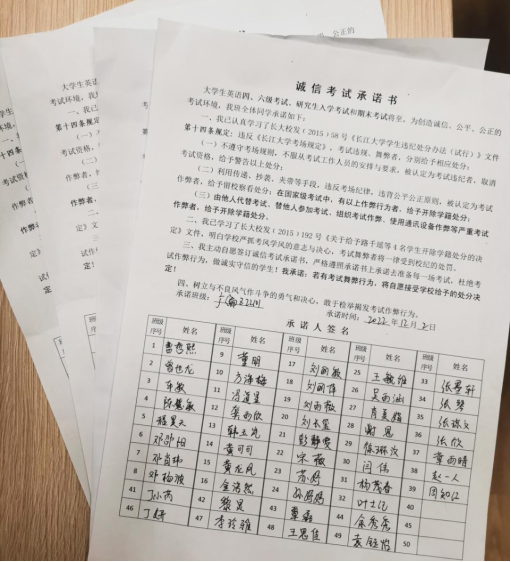 诚信考试承诺书
大学生英语四、六级考试、研究生入学考试和期末考试将至,为创造诚信、公平、公正的
考试环境,我班全体同学承诺如下:
一、我已认真学习了长大校发〔2015〕58号《长江大学学生违纪处分办法(试行)》文件
第十四条规定:违反《长江大学考场规定》,考试违规、舞弊者,分别给予相应处分:
(一)不遵守考场规则,不服从考试工作人员的安排与要求,被认定为考试违纪者,取消
考试资格,给予警告以上处分;
(二)利用传递、抄袭、夹带等手段,违反考场纪律,违背公平公正原则,被认定为考试
作弊者,给予留校察看处分;在国家级考试中,有以上作弊行为者,给予开除学籍处分;
(三)由他人代替考试、替他人参加考试、组织考试作弊、使用通讯设备作弊等严重考试
作弊者,给予开除学籍处分。
二、我已学习了长大校发〔2015〕192号《关于给予路千瑶等4名学生开除学籍处分的决
定》文件,明白学校严抓考风学风的意志与决心,考试舞弊者将一律受到校纪的处罚。
三、我主动自愿签订诚信考试承诺书,严格遵照承诺书上承诺去准备每一场考试,杜绝考
试作弊行为,做诚实守信的学生!我承诺:若有考试舞弊行为,将自愿接受学校给予的处分决
定!
四、树立与不良风气作斗争的勇气和决心,敢于检举揭发考试作弊行为。
承诺班级:
承诺时间:2022年12月2日
承诺人签名
班级序号 姓名 班级序号 姓名 班级序号 姓名 班级序号 姓名 班级序号 姓名
1 曹哲熙 9 董朋 17 刘丽敏 25 王敏维 33 张墨轩
2 曾世龙 10 方海梅 18 刘丽倩 26 吴雨涵 34 张琴
3 车敏 11 冯道昱 19 刘雨薇 27 肖美腊 35 张琼文
4 陈慧敏 12 龚雨欣 20 刘长玺 28 谢恩 36 张欣
5 程昊天 13 韩玉岚 21 彭静雯 29 徐琳汝 37 章雨晴
6 邓邵阳 14 黄可可 22 宋薇 30 闫伟 38 赵一人
7 邓贞珠 15 黄龙凤 23 苏妤 31 杨茂春 39 周知江
8 邓柏波 16 金浩然 24 孙婷婷 32 叶士亿 40
41 丁小芮 42 黎昊 43 覃露 44 余秀秀 45
46 丁妍 47 李玲雅 48 王思佳 49 袁钰怡 50